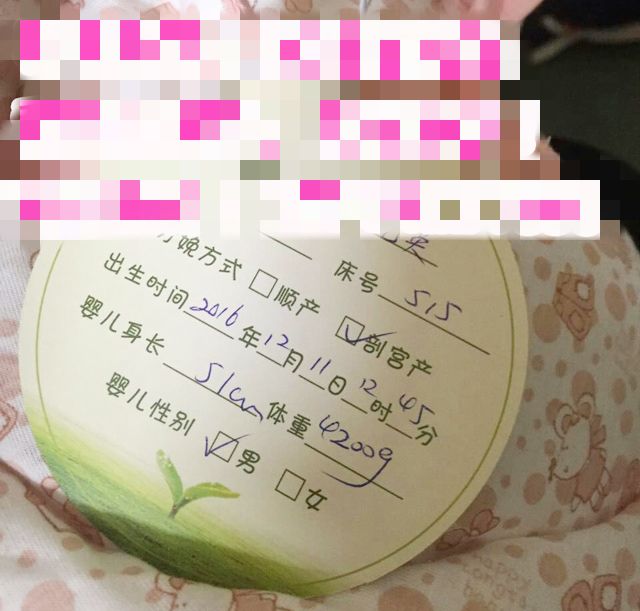 分娩方式 □顺产 ☑剖宫产
床号 515
出生时间 2016 年 12 月 11 日 12 时 45 分
婴儿身长 51cm 体重 4200g
婴儿性别 ☑男 □女